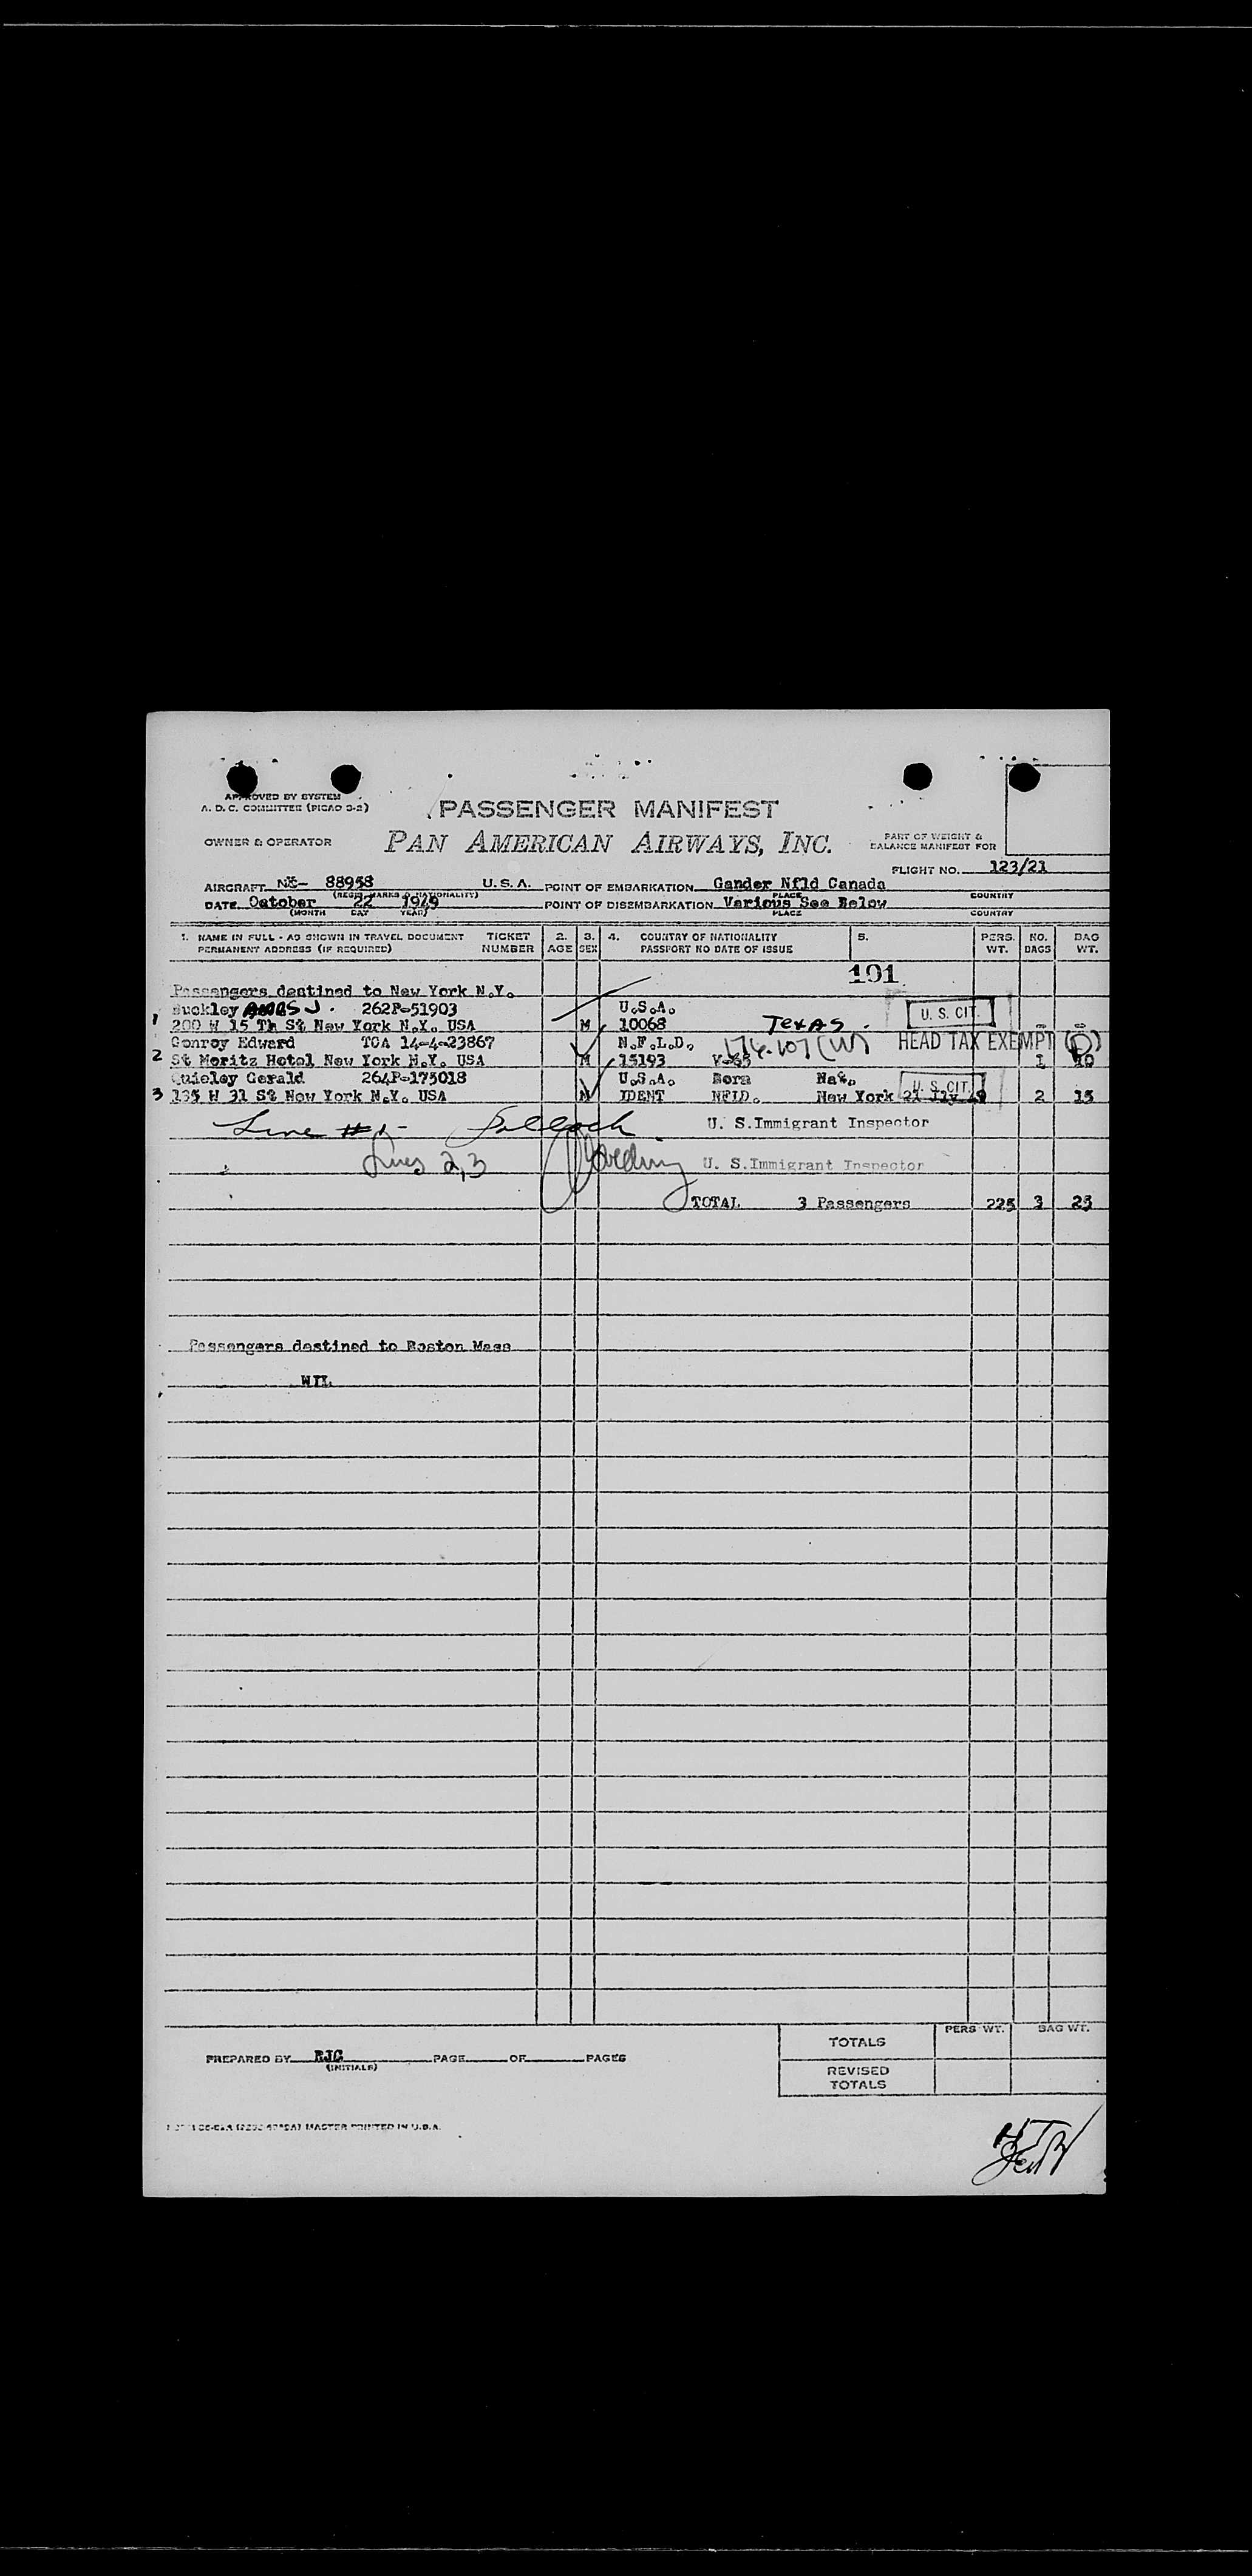 APPROVED BY SYSTEM
A. D. C. COMMITTEE (PICAO 3-2)
PASSENGER MANIFEST
OWNER & OPERATOR PAN AMERICAN AIRWAYS, INC.
PART OF WEIGHT &
BALANCE MANIFEST FOR
FLIGHT NO. 123/21
AIRCRAFT 88958 U.S.A. POINT OF EMBARKATION Gander Nfld Canada
(REGIS. MARKS & NATIONALITY) PLACE COUNTRY
DATE October 22 1949 POINT OF DISEMBARKATION Various See Below
(MONTH DAY YEAR) PLACE COUNTRY
1. NAME IN FULL - AS SHOWN IN TRAVEL DOCUMENT TICKET 2. 3. 4. COUNTRY OF NATIONALITY 5. PERS. NO. BAG
PERMANENT ADDRESS (IF REQUIRED) NUMBER AGE SEX PASSPORT NO DATE OF ISSUE WT. BAGS WT.
101
Passengers destined to New York N.Y.
Buckley 262P-51903 U.S.A. U. S. CIT.
1 200 W 15 Th St New York N.Y. USA M 10068 TEXAS. - -
Conroy Edward TCA 14-4-23867 N.F.L.D. 176.107 (W) HEAD TAX EXEMPT (D)
2 St Moritz Hotel New York N.Y. USA M 15193 1 10
Quigley Gerald 264P-175018 U.S.A. Born Nat. U. S. CIT.
3 135 W 31 St New York N.Y. USA M IDENT NFLD. New York 2 15
Line #1- U. S.Immigrant Inspector
Lines 2,3 U. S.Immigrant Inspector
TOTAL 3 Passengers 225 3 25
Passengers destined to Boston Mass
NIL
PERS WT. BAG WT.
TOTALS
PREPARED BY RJC PAGE OF PAGES
(INITIALS)
REVISED
TOTALS
MASTER PRINTED IN U.S.A.